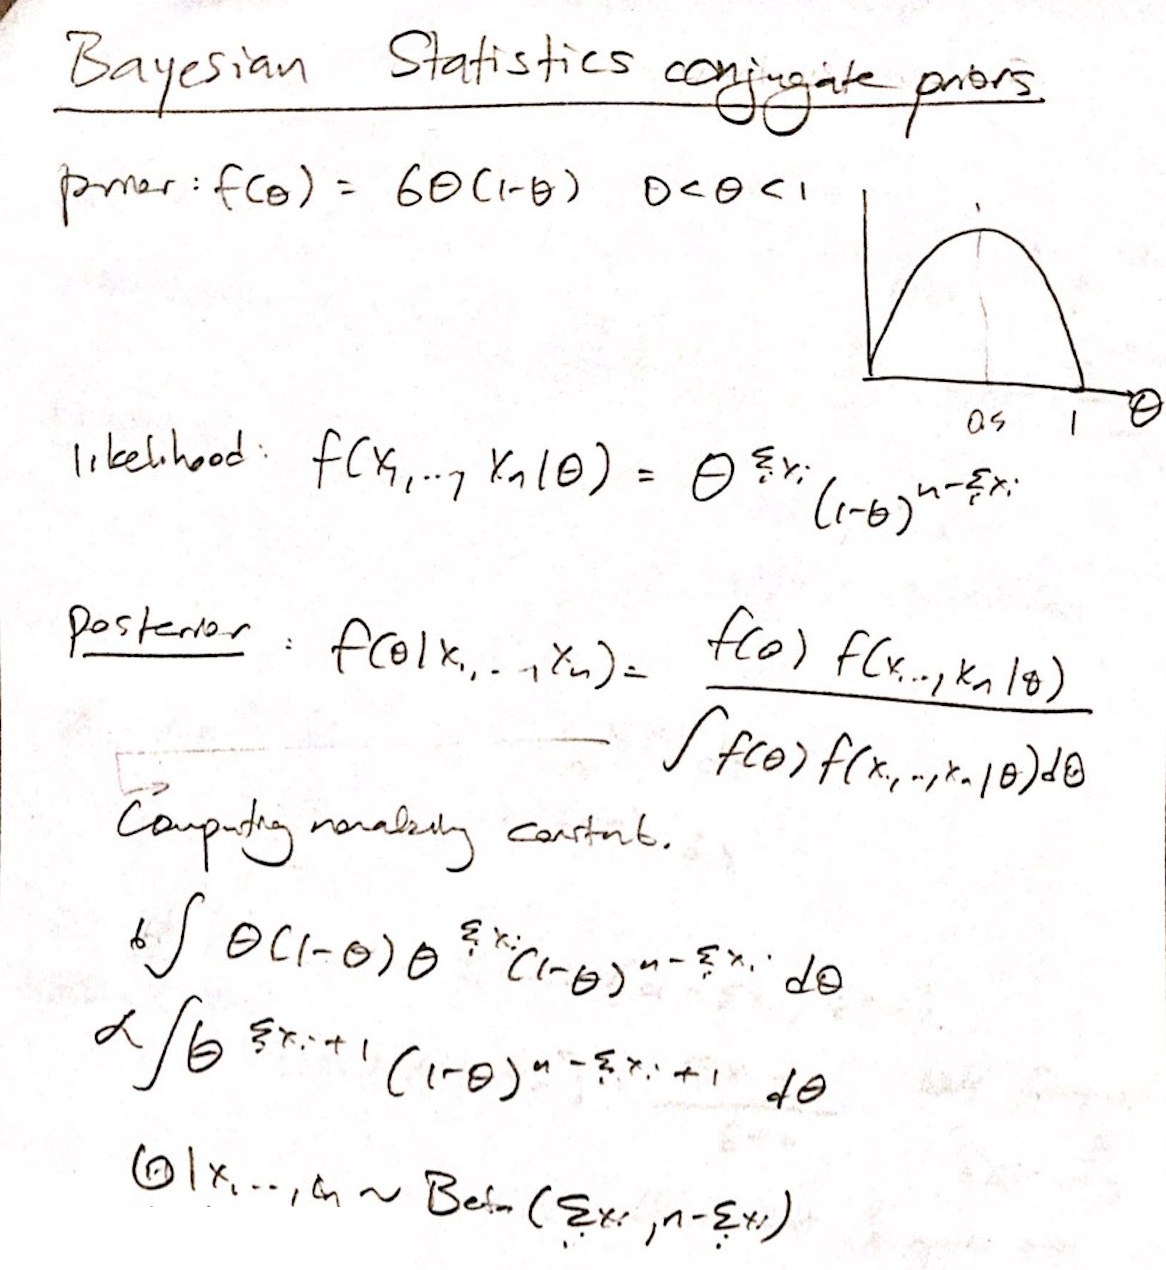 Bayesian Statistics conjugate priors
prior: f(θ) = 6θ(1-θ) 0<θ<1
0.5 1 θ
likelihood: f(x₁,..., xₙ|θ) = θ^{Σxᵢ} (1-θ)^{n-Σxᵢ}
Posterior: f(θ|x₁,..,xₙ) = \frac{f(θ) f(x₁,..,xₙ|θ)}{∫ f(θ) f(x₁,..,xₙ|θ)dθ}
Computing normalizing constant.
6∫ θ(1-θ)θ^{Σxᵢ}(1-θ)^{n-Σxᵢ} dθ
α ∫θ^{Σxᵢ+1} (1-θ)^{n-Σxᵢ+1} dθ
Θ|x₁...,xₙ ~ Beta(Σxᵢ, n-Σxᵢ)